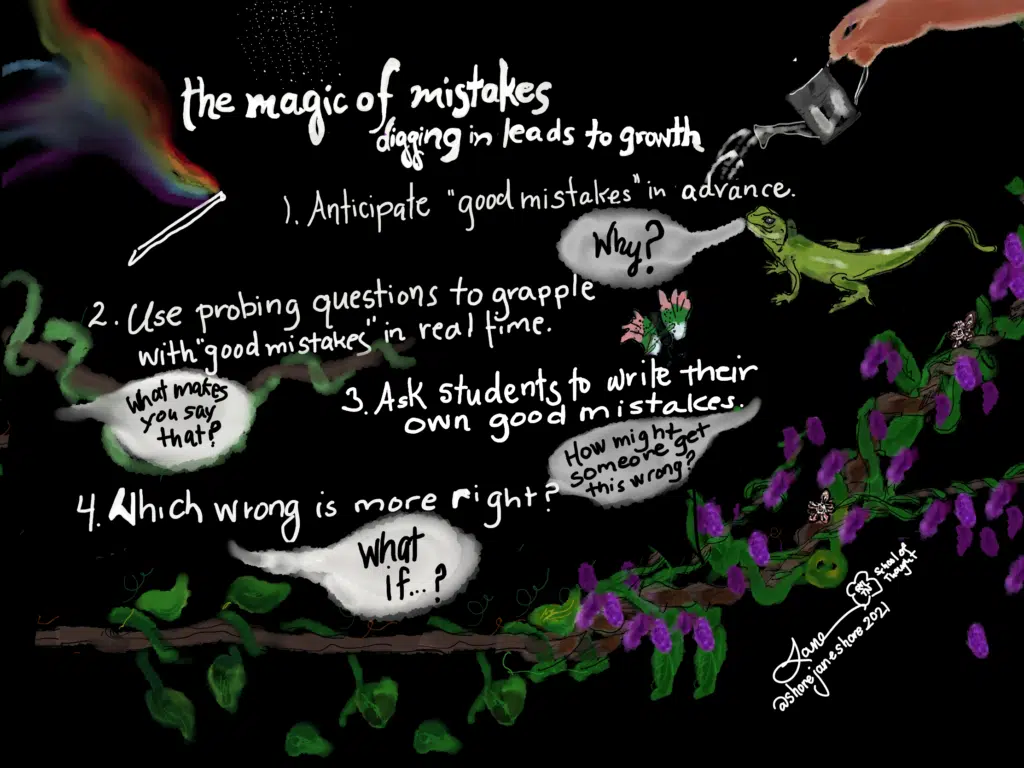 the magic of mistakes
digging in leads to growth
1. Anticipate "good mistakes" in advance.
Why?
2. Use probing questions to grapple
with "good mistakes" in real time.
What makes
you say
that?
3. Ask students to write their
own good mistakes.
How might
someone get
this wrong?
4. Which wrong is more right?
What
if...?
School of
Thought
Jana
@shorejaneshore.2021